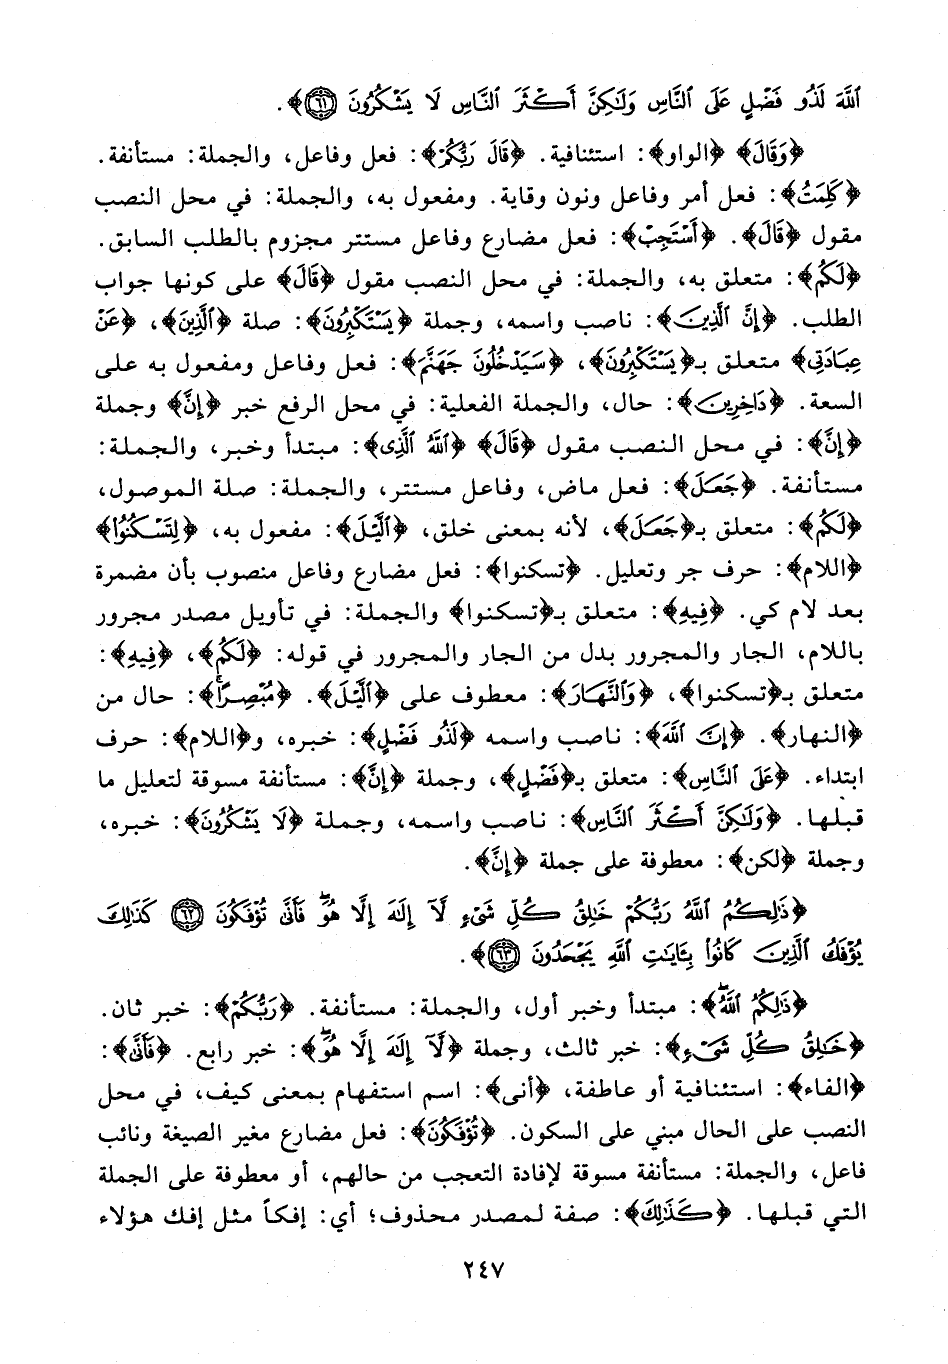 ٱللَّهَ لَذُو فَضْلٍ عَلَى ٱلنَّاسِ وَلَٰكِنَّ أَكْثَرَ ٱلنَّاسِ لَا يَشْكُرُونَ ﴿٦١﴾.
﴿وَقَالَ﴾ ﴿الواو﴾: استئنافية. ﴿قَالَ رَبُّكُمُ﴾: فعل وفاعل، والجملة: مستأنفة.
﴿كَلِمَتُ﴾: فعل أمر وفاعل ونون وقاية. ومفعول به، والجملة: في محل النصب
مقول ﴿قَالَ﴾. ﴿أَسْتَجِبْ﴾: فعل مضارع وفاعل مستتر مجزوم بالطلب السابق.
﴿لَكُمْ﴾: متعلق به، والجملة: في محل النصب مقول ﴿قَالَ﴾ على كونها جواب
الطلب. ﴿إِنَّ ٱلَّذِينَ﴾: ناصب واسمه، وجملة ﴿يَسْتَكْبِرُونَ﴾: صلة ﴿ٱلَّذِينَ﴾، ﴿عَنْ
عِبَادَتِي﴾ متعلق بـ﴿يَسْتَكْبِرُونَ﴾، ﴿سَيَدْخُلُونَ جَهَنَّمَ﴾: فعل وفاعل ومفعول به على
السعة. ﴿دَاخِرِينَ﴾: حال، والجملة الفعلية: في محل الرفع خبر ﴿إِنَّ﴾ وجملة
﴿إِنَّ﴾: في محل النصب مقول ﴿قَالَ﴾ ﴿ٱللَّهُ ٱلَّذِى﴾: مبتدأ وخبر، والجملة:
مستأنفة. ﴿جَعَلَ﴾: فعل ماض، وفاعل مستتر، والجملة: صلة الموصول،
﴿لَكُمُ﴾: متعلق بـ﴿جَعَلَ﴾، لأنه بمعنى خلق، ﴿ٱلَّيْلَ﴾: مفعول به، ﴿لِتَسْكُنُوا﴾
﴿اللام﴾: حرف جر وتعليل. ﴿تسكنوا﴾: فعل مضارع وفاعل منصوب بأن مضمرة
بعد لام كي. ﴿فِيهِ﴾: متعلق بـ﴿تسكنوا﴾ والجملة: في تأويل مصدر مجرور
باللام، الجار والمجرور بدل من الجار والمجرور في قوله: ﴿لَكُمُ﴾، ﴿فِيهِ﴾:
متعلق بـ﴿تسكنوا﴾، ﴿وَٱلنَّهَارَ﴾: معطوف على ﴿ٱلَّيْلَ﴾. ﴿مُبْصِرًا﴾: حال من
﴿النهار﴾. ﴿إِنَّ ٱللَّهَ﴾: ناصب واسمه ﴿لَذُو فَضْلٍ﴾: خبره، و﴿اللام﴾: حرف
ابتداء. ﴿عَلَى ٱلنَّاسِ﴾: متعلق بـ﴿فَضْلٍ﴾، وجملة ﴿إِنَّ﴾: مستأنفة مسوقة لتعليل ما
قبلها. ﴿وَلَٰكِنَّ أَكْثَرَ ٱلنَّاسِ﴾: ناصب واسمه، وجملة ﴿لَا يَشْكُرُونَ﴾: خبره،
وجملة ﴿لكن﴾: معطوفة على جملة ﴿إِنَّ﴾.
﴿ذَٰلِكُمُ ٱللَّهُ رَبُّكُمْ خَٰلِقُ كُلِّ شَىْءٍ لَّآ إِلَٰهَ إِلَّا هُوَ ۖ فَأَنَّىٰ تُؤْفَكُونَ ٦٢ كَذَٰلِكَ
يُؤْفَكُ ٱلَّذِينَ كَانُوا۟ بِـَٔايَٰتِ ٱللَّهِ يَجْحَدُونَ ٦٣﴾.
﴿ذَٰلِكُمُ ٱللَّهُ﴾: مبتدأ وخبر أول، والجملة: مستأنفة. ﴿رَبُّكُمْ﴾: خبر ثان.
﴿خَٰلِقُ كُلِّ شَىْءٍ﴾: خبر ثالث، وجملة ﴿لَآ إِلَٰهَ إِلَّا هُوَ ۖ﴾: خبر رابع. ﴿فَأَنَّىٰ﴾:
﴿الفاء﴾: استئنافية أو عاطفة، ﴿أنى﴾: اسم استفهام بمعنى كيف، في محل
النصب على الحال مبني على السكون. ﴿تُؤْفَكُونَ﴾: فعل مضارع مغير الصيغة ونائب
فاعل، والجملة: مستأنفة مسوقة لإفادة التعجب من حالهم، أو معطوفة على الجملة
التي قبلها. ﴿كَذَٰلِكَ﴾: صفة لمصدر محذوف؛ أي: إفكاً مثل إفك هؤلاء
٢٤٧